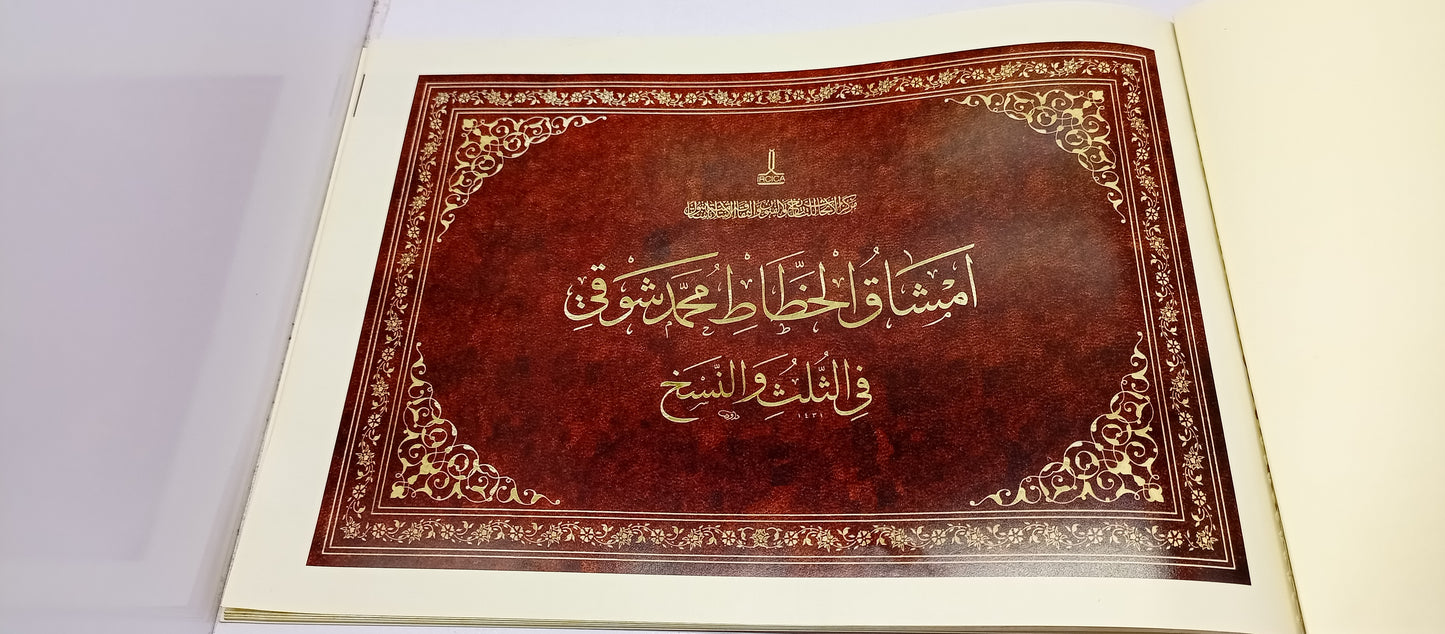 IRCICA
مركز الأبحاث للتاريخ والفنون والثقافة الإسلامية باستانبول
امشاق الخطاط محمد شوقي
في الثلث والنسخ
١٤٣١ داود